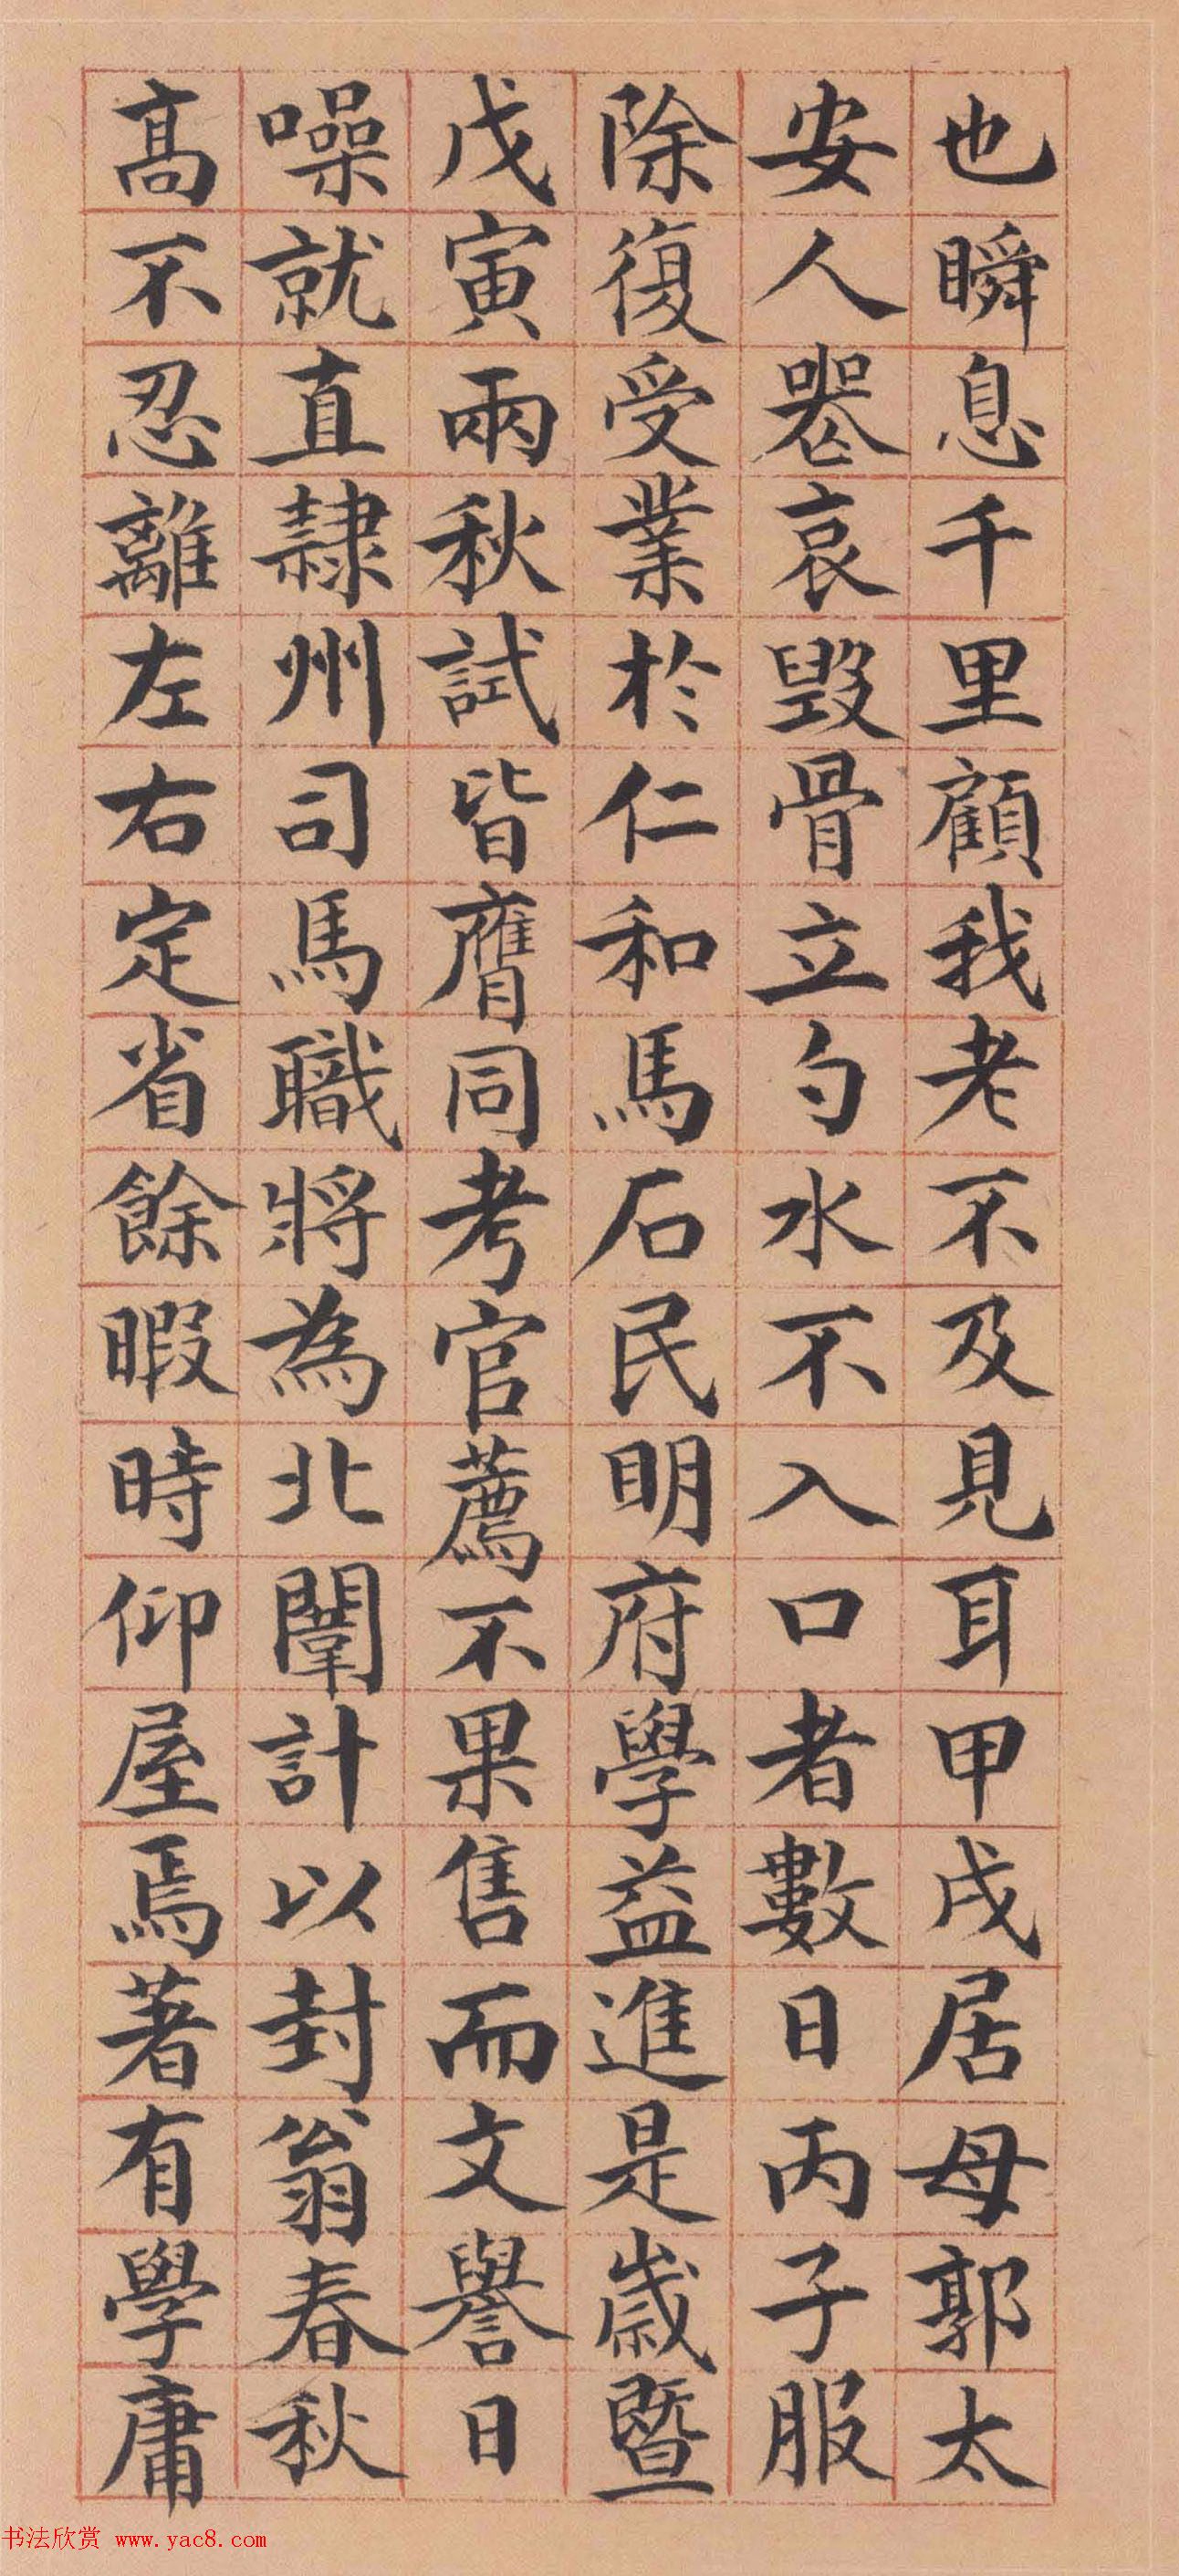 也瞬息千里顧我老不及見耳甲戌居母郭太
安人喪哀毀骨立勺水不入口者數日丙子服
除復受業於仁和馬石民明府學益進是歲暨
戊寅兩秋試皆膺同考官薦不果售而文譽日
噪就直隸州司馬職將為北闈計以封翁春秋
高不忍離左右定省餘暇時仰屋焉著有學庸
书法欣赏 www.yac8.com